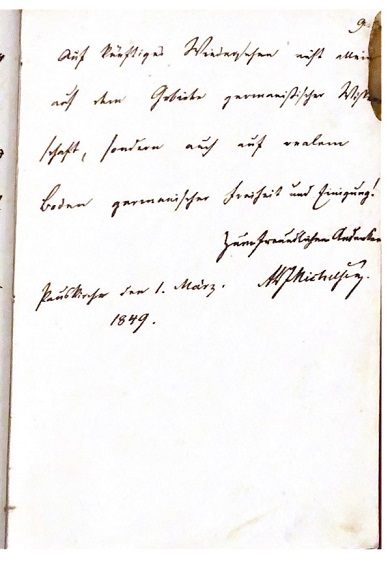 9
Auf künftiges Wiedersehen nicht allein
auf dem Gebiete germanistischer Wissen
schaft, sondern auch auf realem
Boden germanischer Freiheit und Einigung!
Zum freundlichen Andenken
Paulskirche den 1. März. ALJMichelsen.
1849.